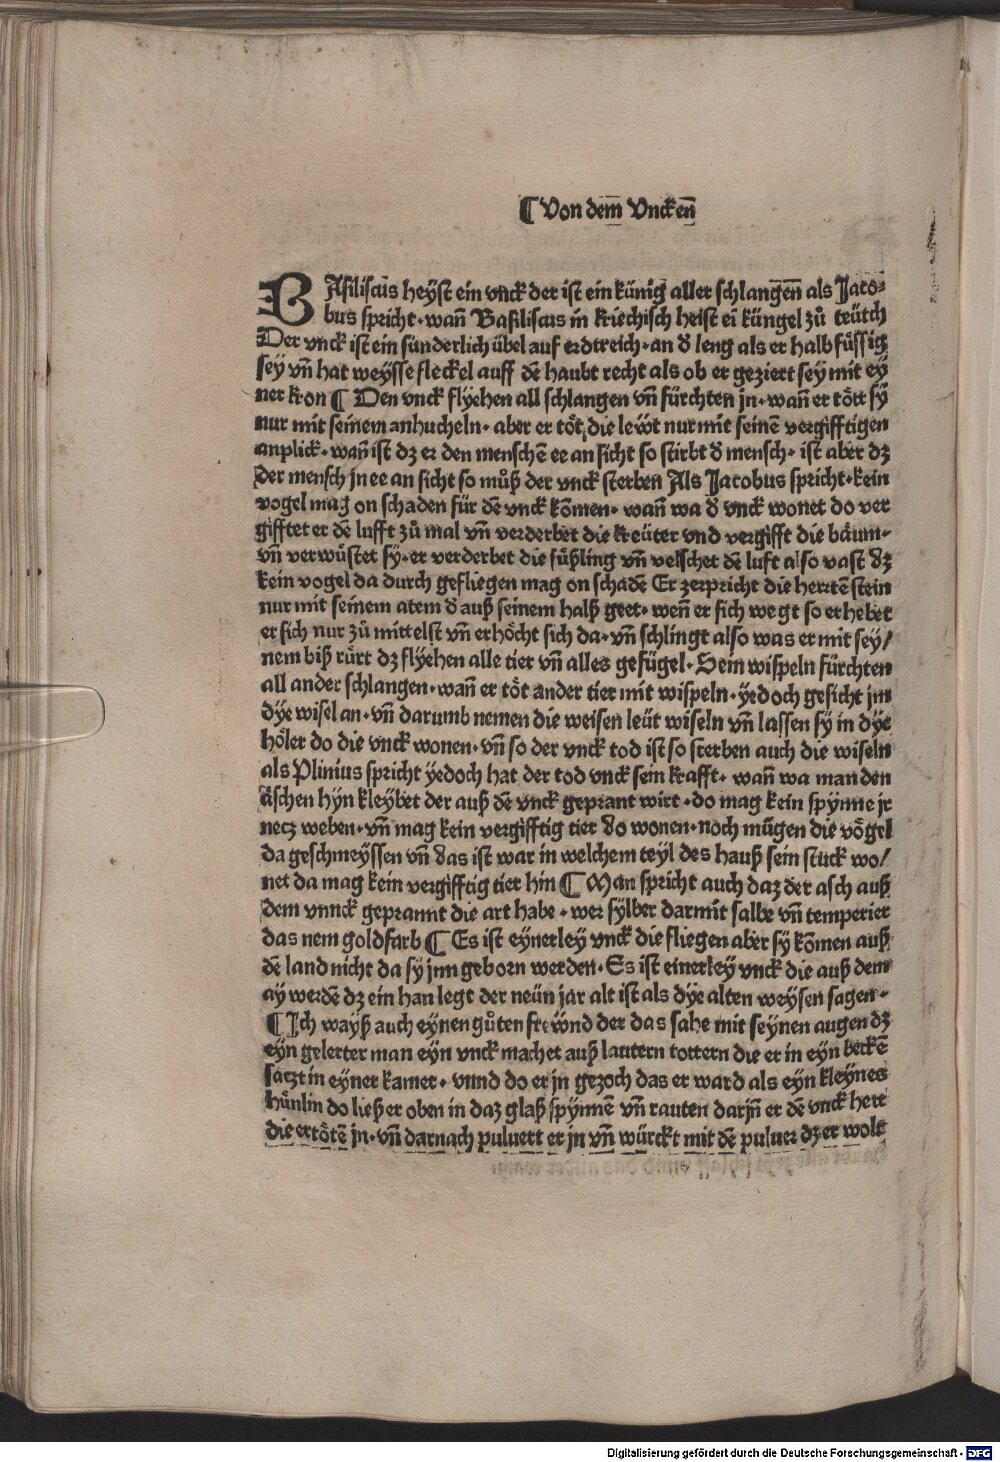 ¶ Von dem̄ Vncken̄
BAsiliscus heyſt ein vnck der iſt ein künig aller ſchlangen̄ als Jaco⸗
bus ſpricht · wan̄ Baſiliſcus in kriechiſch heiſt ei küngel zů teütch
Der vnck iſt ein ſünderlich übel auf erdtreich · an ď leng als er halb füſſig
ſey vn̄ hat weyſſe fleckel auff dē haubt recht als ob er geziert ſey mit ey
ner kron ¶ Den vnck flyehen all ſchlangen vn̄ fürchten jn · wan̄ er tött ſy
nur mit ſeinem anhucheln · aber er töt die lewt nur mit ſeinē vergifftigen
anplick · wan̄ iſt dz er den menſchē ee an ſicht ſo ſtirbt ď menſch · iſt aber dz
der menſch jn ee an ſicht ſo můß der vnck ſterben̄ Als Jacobus ſpricht · kein
vogel mag on ſchaden für dē vnck kōmen · wan̄ wa ď vnck wonet do ver
gifftet er dē lufft zů mal vn̄ verderbet die kreüter vnd vergifft die bäum ·
vn̄ verwüſtet ſy · er verderbet die füßling vn̄ velſchet dē luft alſo vaſt dz
kein vogel da durch gefliegen mag on ſchadē Er zerpricht die herrtē ſtein
nur mit ſeinem atem ď auß ſeinem halß geet · wen̄ er ſich wegt ſo erhebet
er ſich nur zů mittelſt vn̄ erhöcht ſich da · vn̄ ſchlingt alſo was er mit ſey/
nem biß rürt dz flyehen alle tier vn̄ alles gefügel · Sein wiſpeln fürchten
all ander ſchlangen · wan̄ er töt ander tier mit wiſpeln · yedoch geſicht jm
dye wiſel an · vn̄ darumb nemen die weiſen leüt wiſeln vn̄ laſſen ſy in dye
höler do die vnck wonen · vn̄ ſo der vnck tod iſt ſo ſterben auch die wiſeln
als Plinius ſpricht yedoch hat der tod vnck ſein krafft · wan̄ wa man den
äſchen hyn kleybet der auß dē vnck geprant wirt · do mag kein ſpynne jr
necz weben · vn̄ mag kein vergifftig tier do wonen · noch mügen die vögel
da geſchmeyſſen vn̄ das iſt war in welchem teyl des hauß ſein ſtück wo/
net da mag kein vergifftig tier hin ¶ Man ſpricht auch daz der aſch auß
dem vnnck geprannt die art habe · wer ſylber darmit ſalbe vn̄ temperier
das nem goldfarb ¶ Es iſt eynerley vnck die fliegen aber ſy kōmen auß
dē land nicht da ſy jnn geborn werden · Es iſt einerley vnck die auß dem
ay werdē dz ein han legt der neün jar alt iſt als dye alten weyſen ſagen ·
¶ Ich wayß auch eynen gůten frewnd der das ſahe mit ſeynen augen dz
eyn gelerter man eyn vnck machet auß lautern tottern die er in eyn beckē
ſatzt in eyner kamer · vnnd do er jn gezoch das er ward als eyn kleynes
hünlin do ließ er oben in daz glaß ſpynnē vn̄ rauten darjn̄ er dē vnck hett
die ertötē jn · vn̄ darnach puluert er jn vn̄ würckt mit dē puluer dz er wolt
Digitalisierung gefördert durch die Deutsche Forschungsgemeinschaft - DFG